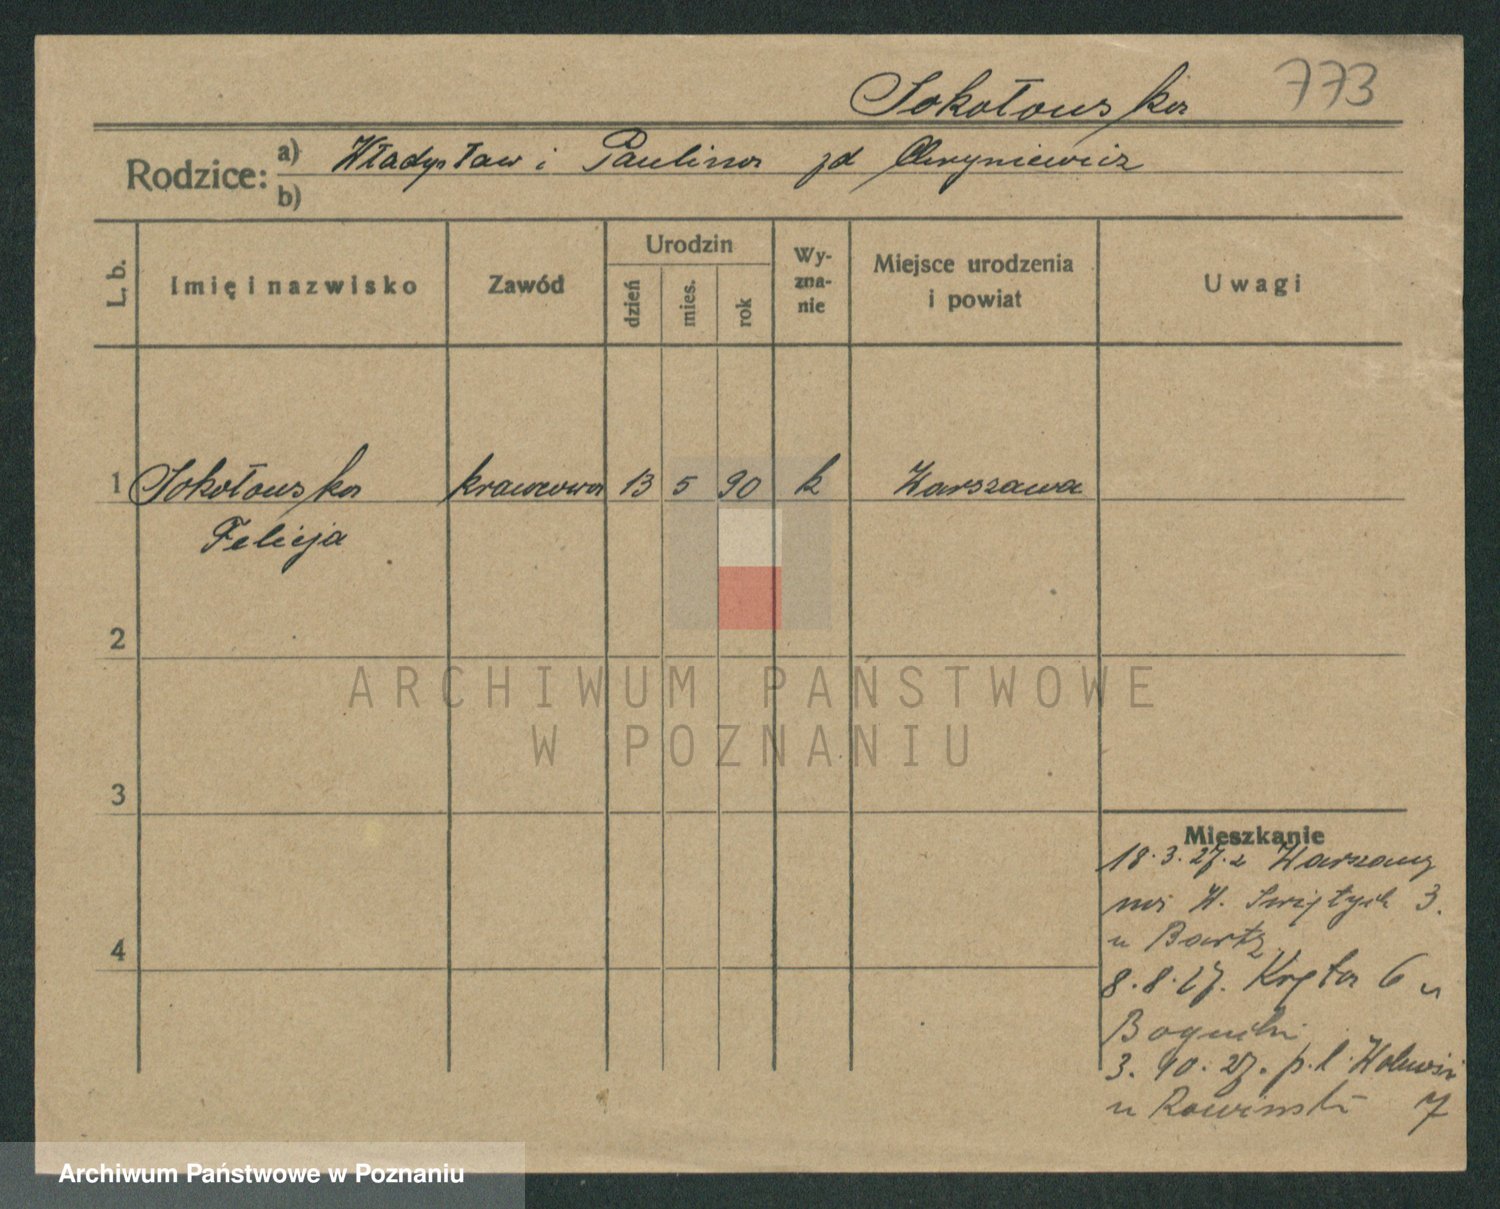 Sokołowska 773
Rodzice: a) Władysław i Paulina zd
b)
L. b. Imię i nazwisko Zawód Urodzin dzień mies. rok Wy-zna-nie Miejsce urodzenia i powiat Uwagi
1 Sokołowska krawcowa 13 5 90 k Warszawa
Felicja
2
ARCHIWUM PAŃSTWOWE
W POZNANIU
3
Mieszkanie
18.3.27. z Warszawy
na W. Świętych 3.
4
u Bartz
8.8.27. Kręta 6 u
3.10.27. pl. Wolności
u Rowiński 7
Archiwum Państwowe w Poznaniu